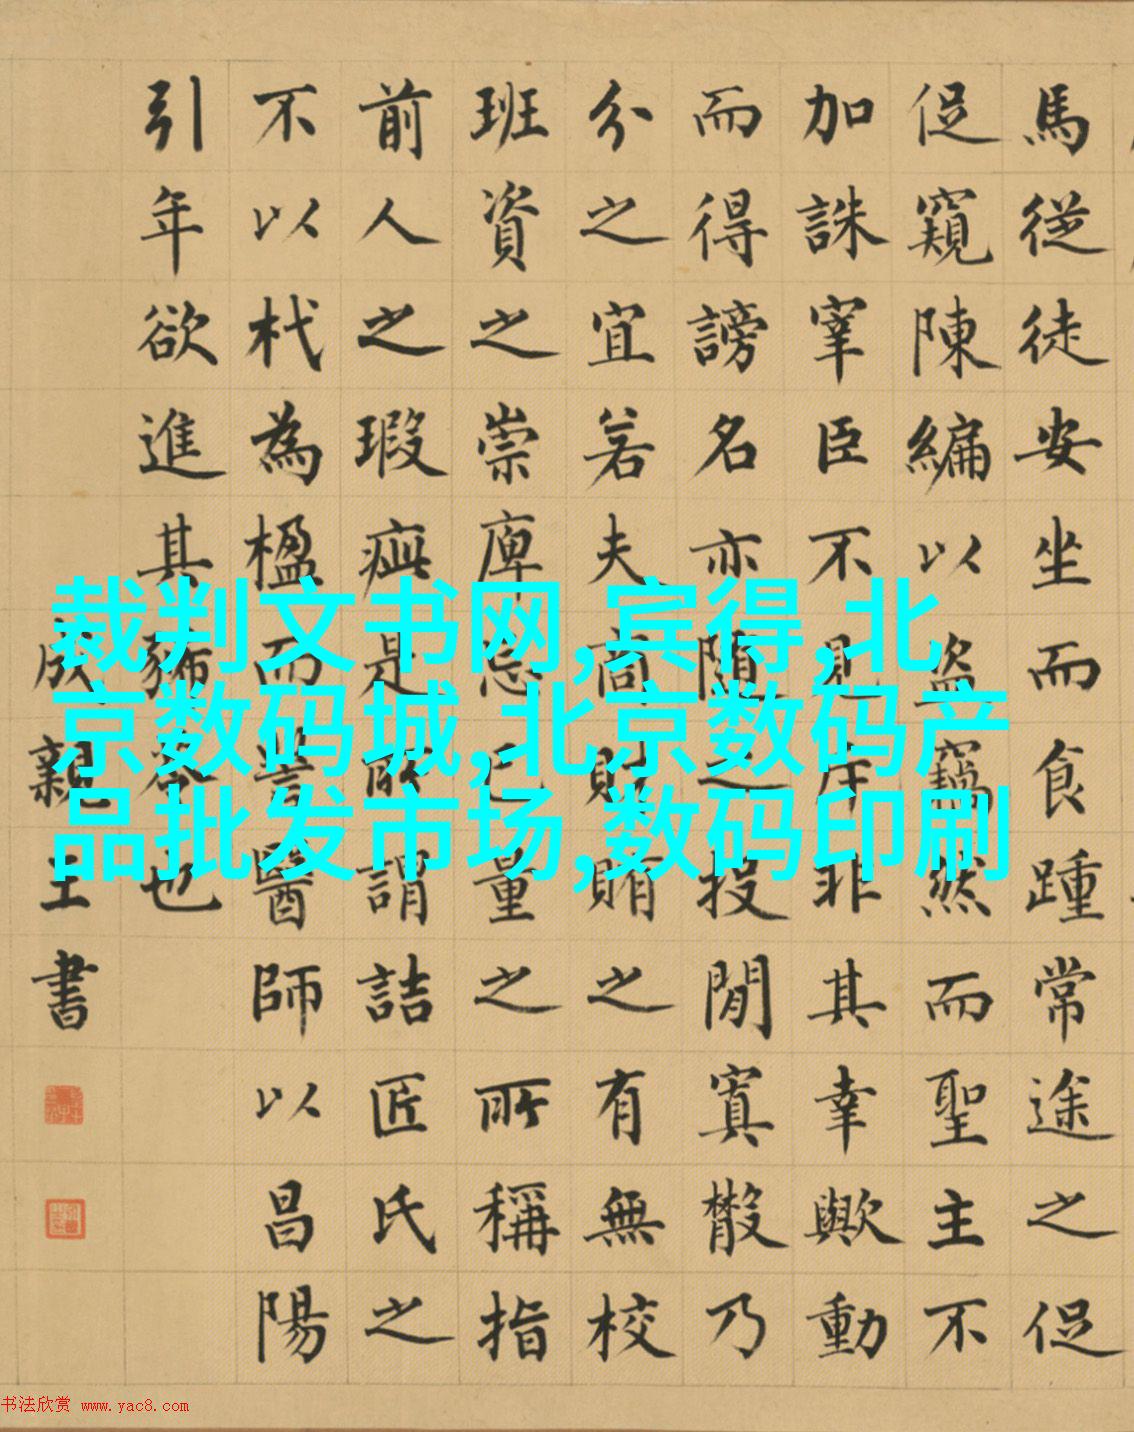 馬從徒安坐而食踵常途之促
促窺陳編以盜竊然而聖主不
加誅宰臣不見斥非其幸歟動
而得謗名亦随之投閒寘散乃
分之宜若夫商財賄之有無校
班資之崇庳忘己量之所稱指
前人之瑕疵是所謂詰匠氏之
不以杙為楹而訾醫師以昌陽
引年欲進其豨苓也
成親王書
裁判文书网,宾得,北
京数码城,北京数码产
品批发市场,数码印刷
书法欣赏 www.yac8.com